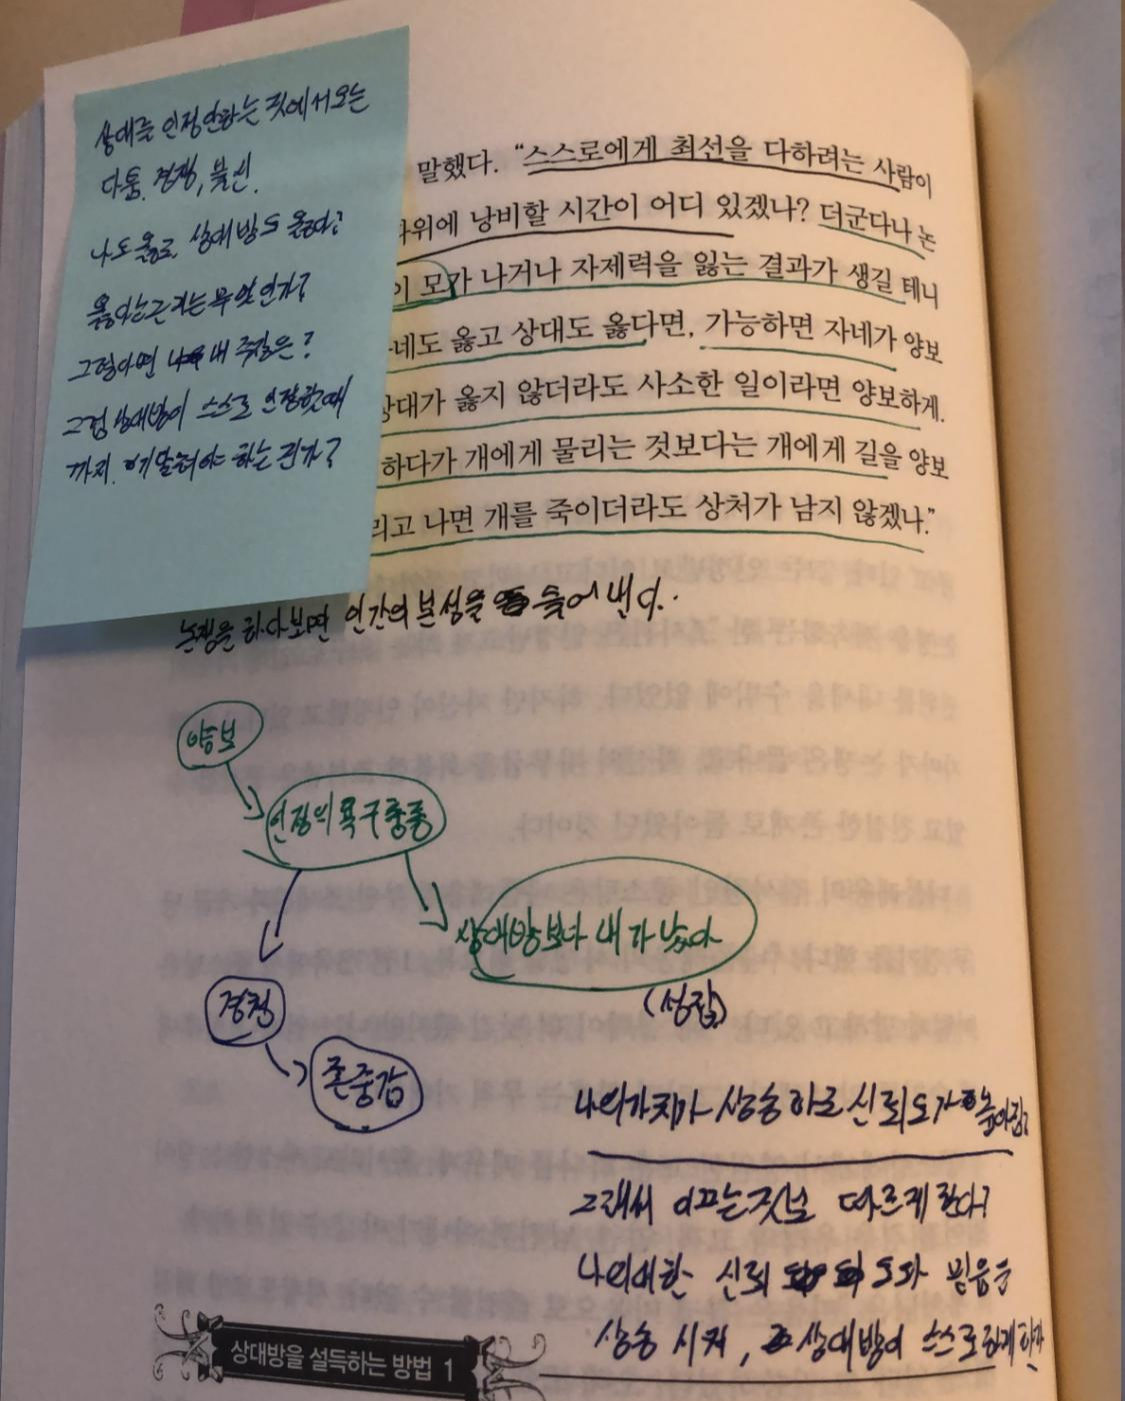 상대를 인정안하는 것에서오는
다툼. 경쟁, 불신.
나도 옳고 상대방도 옳다?
옳다는 근거는 무엇인가?
그렇다면 내 주장은?
그럼 상대방이 스스로 인정할때
까지. 기달려야 하는 건가?
말했다. “스스로에게 최선을 다하려는 사람이
따위에 낭비할 시간이 어디 있겠나? 더군다나 논
이 모가 나거나 자제력을 잃는 결과가 생길 테니
네도 옳고 상대도 옳다면, 가능하면 자네가 양보
상대가 옳지 않더라도 사소한 일이라면 양보하게.
하다가 개에게 물리는 것보다는 개에게 길을 양보
리고 나면 개를 죽이더라도 상처가 남지 않겠나.”
논쟁을 하다보면 인간의 본성을 들어낸다.
양보
인정의 욕구충족
상대방보다 내가 낫다
(성립)
경청
존중감
나의가치가 상승하고 신뢰도가 높아짐?
그래서 이끄는것보 따르게 한다?
나의대한 신뢰 도와 믿음을
상승 시켜, 상대방이 스스로하게한다
상대방을 설득하는 방법 1